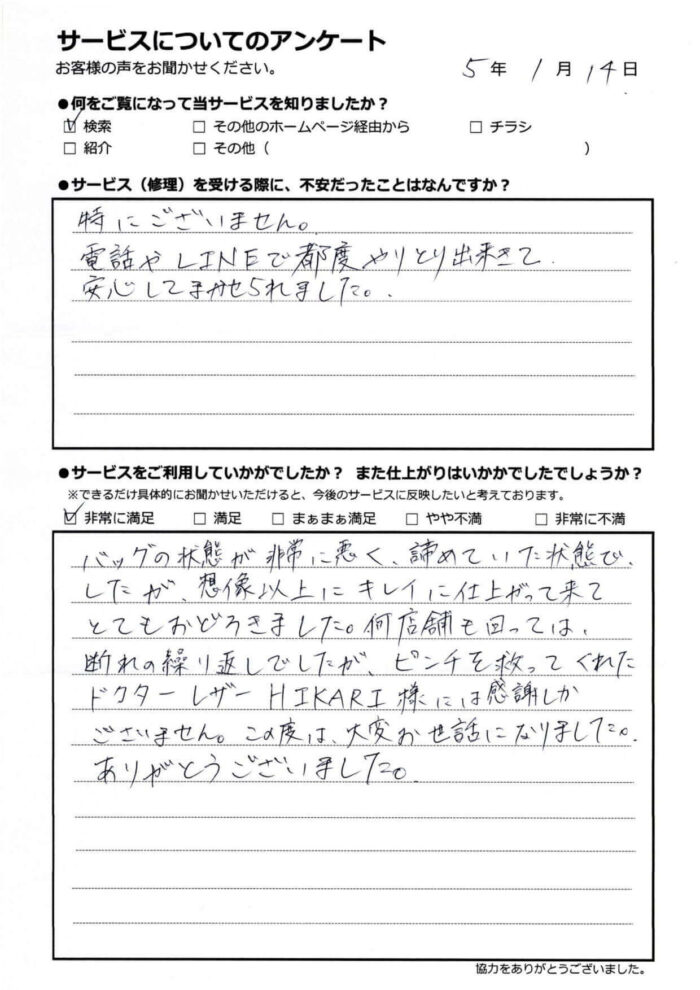 サービスについてのアンケート
お客様の声をお聞かせください。
5年 1月 14日
●何をご覧になって当サービスを知りましたか？
☑ 検索 □ その他のホームページ経由から □ チラシ
□ 紹介 □ その他（ ）
●サービス（修理）を受ける際に、不安だったことはなんですか？
特にございません。
電話やLINEで都度やりとり出来きて
安心してまかせられました。
●サービスをご利用していかがでしたか？ また仕上がりはいかかでしたでしょうか？
※できるだけ具体的にお聞かせいただけると、今後のサービスに反映したいと考えております。
☑ 非常に満足 □ 満足 □ まぁまぁ満足 □ やや不満 □ 非常に不満
バッグの状態が非常に悪く、諦めていた状態で
したが、想像以上にキレイに仕上がって来て
とてもおどろきました。何店舗も回っては、
断れの繰り返しでしたが、ピンチを救ってくれた
ドクターレザーHIKARI様には感謝しか
ございません。この度は、大変お世話になりました。
ありがとうございました。
協力をありがとうございました。